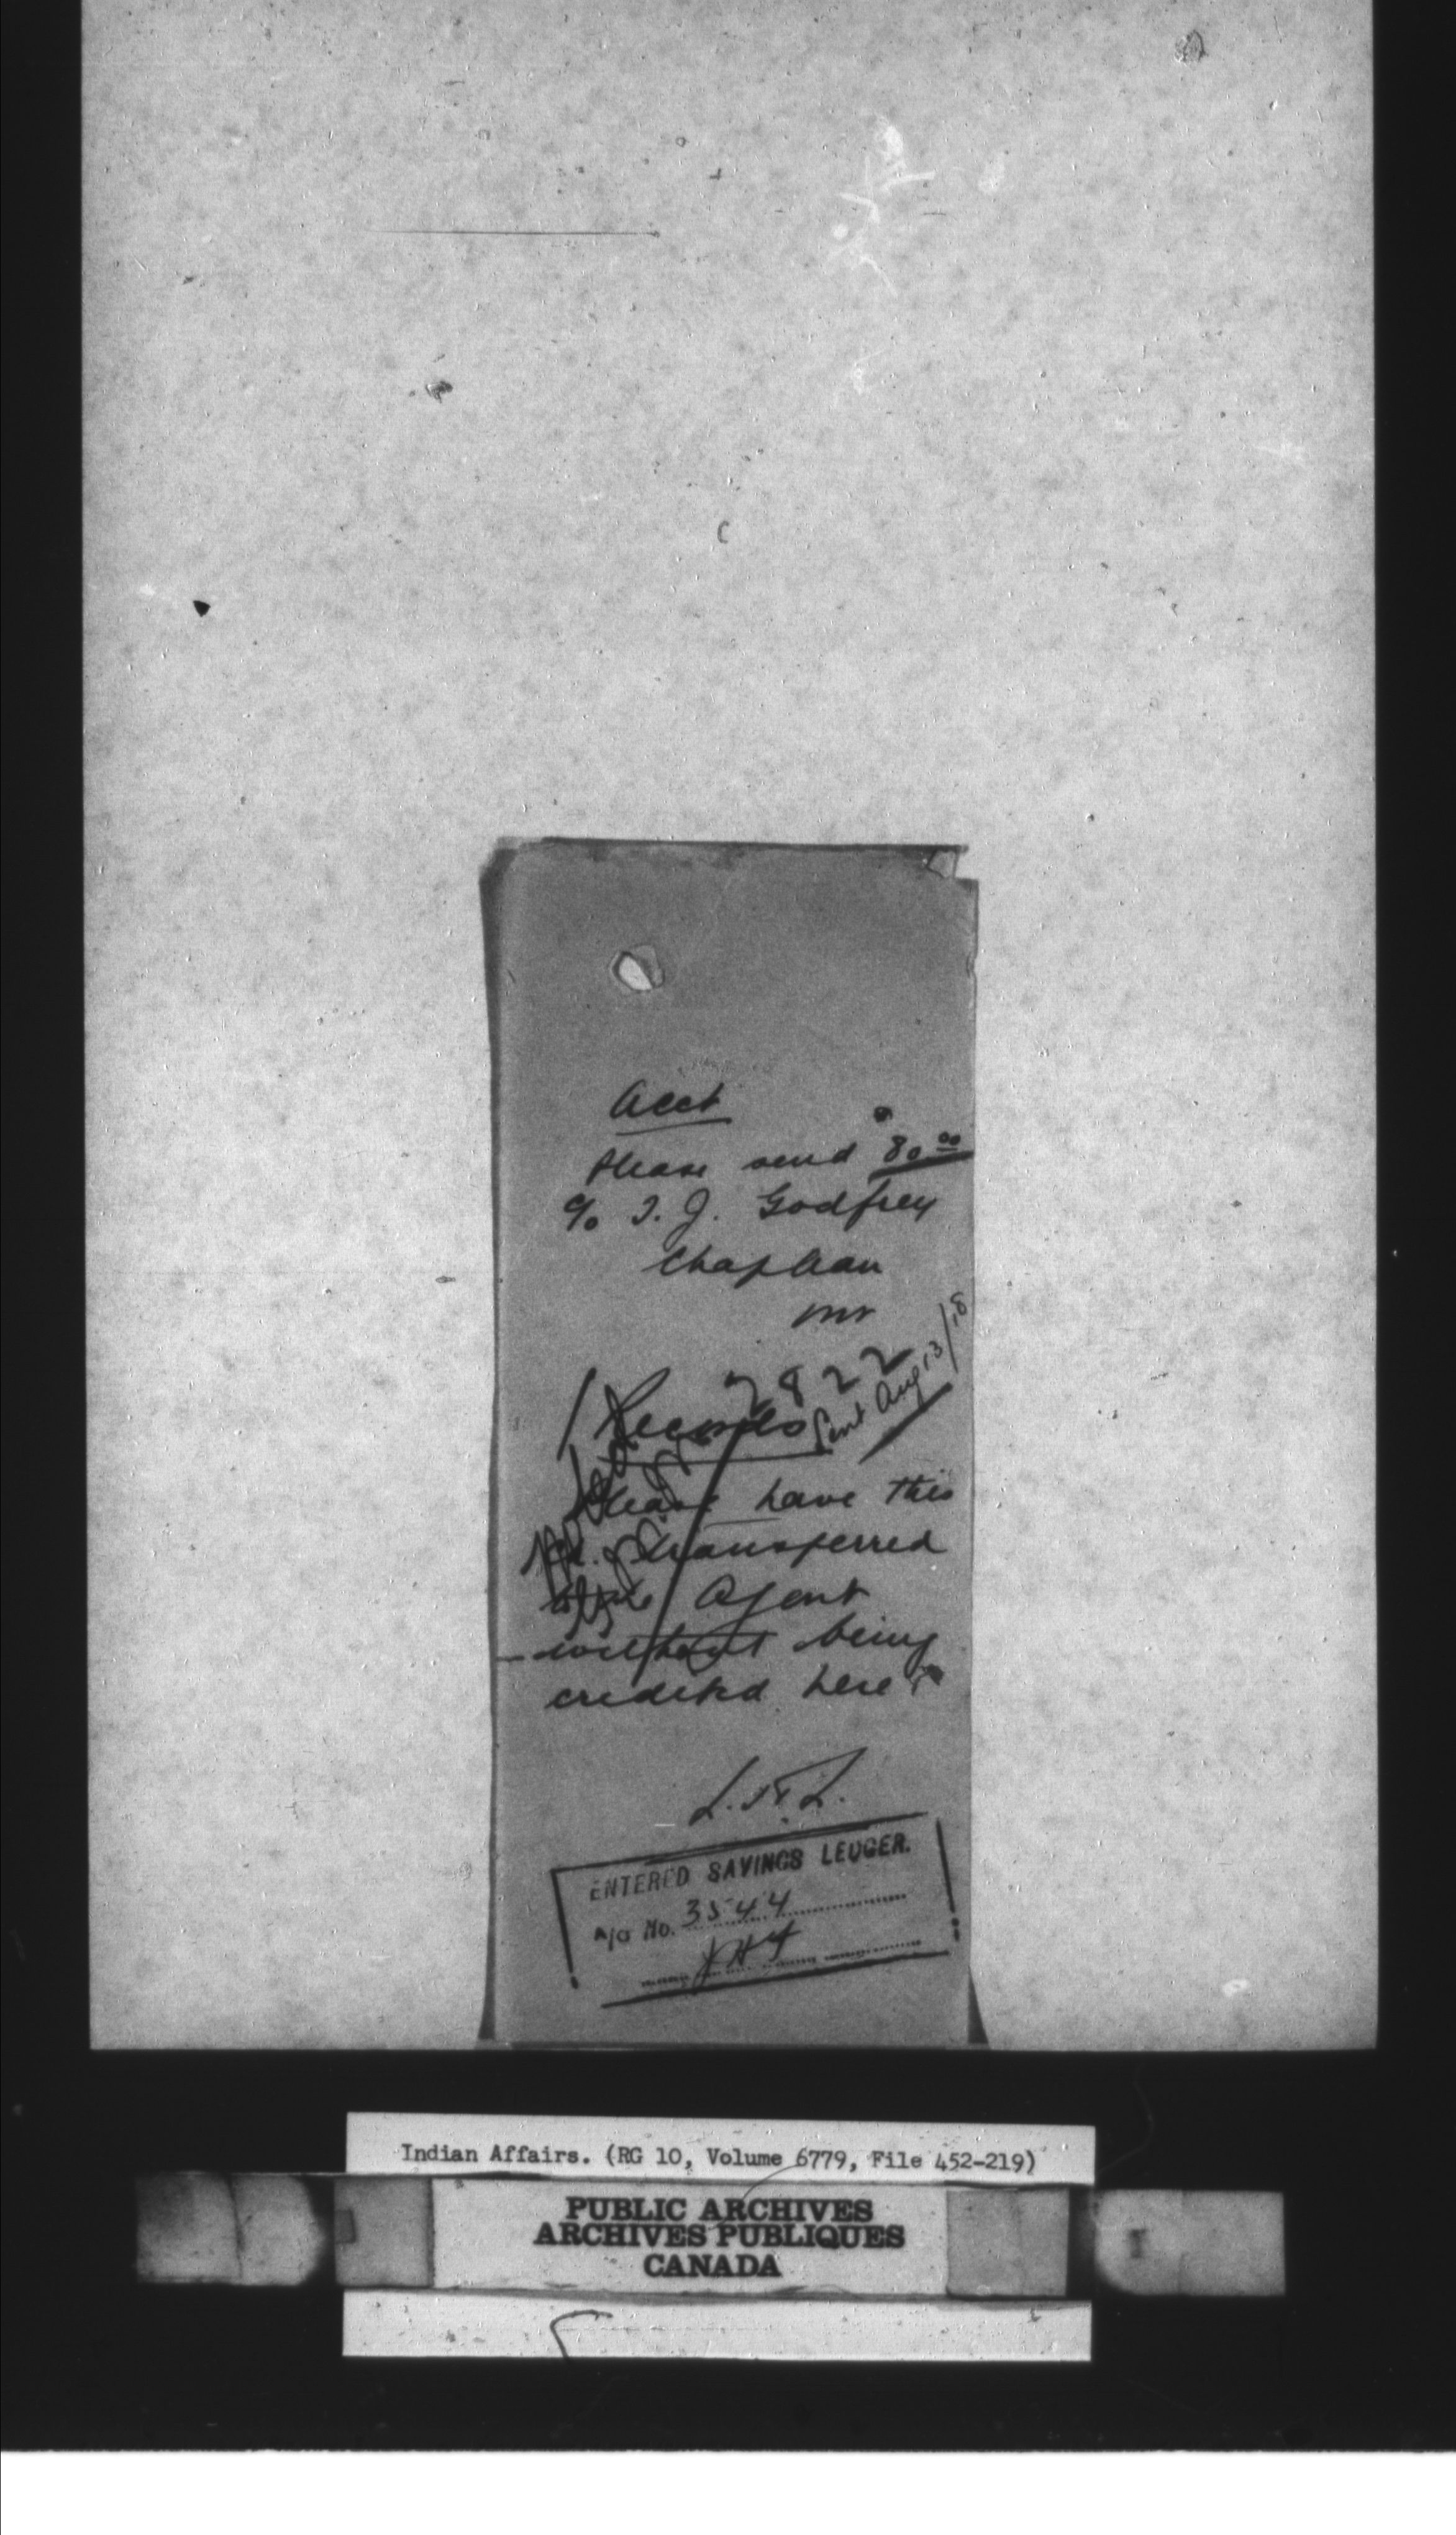 Acct
Please send 80 00
c/o T. J. Godfrey
Chapleau
2822
Sent Aug 13/18
Records
Please have this
transferred
Agent
without being
credited here
ENTERED SAVINGS LEDGER.
A/C No. 3544
Indian Affairs. (RG 10, Volume 6779, File 452-219)
PUBLIC ARCHIVES
ARCHIVES PUBLIQUES
CANADA